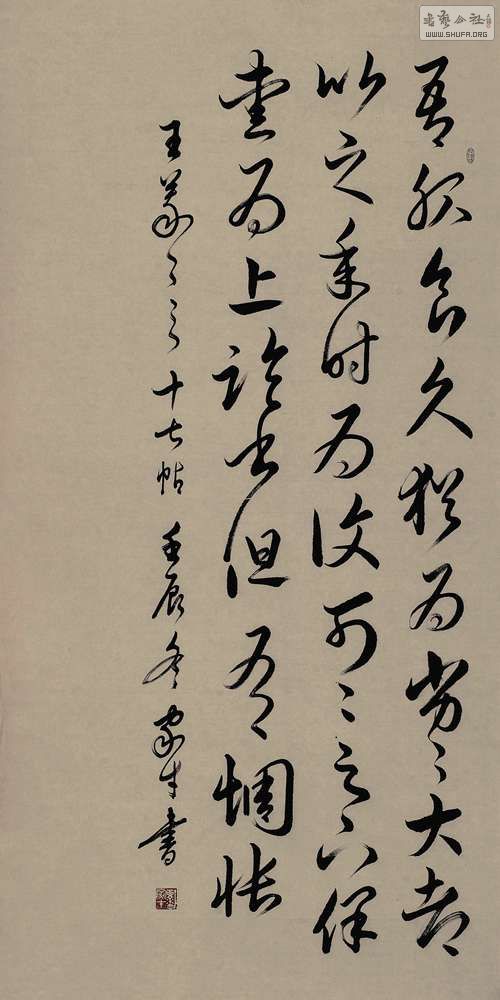 書藝公社
WWW.SHUFA.ORG
吾服食久猶為劣〻大都
比之年時為復可〻足下保
愛為上臨書但有惆悵
王羲之之十七帖 壬辰冬家才書